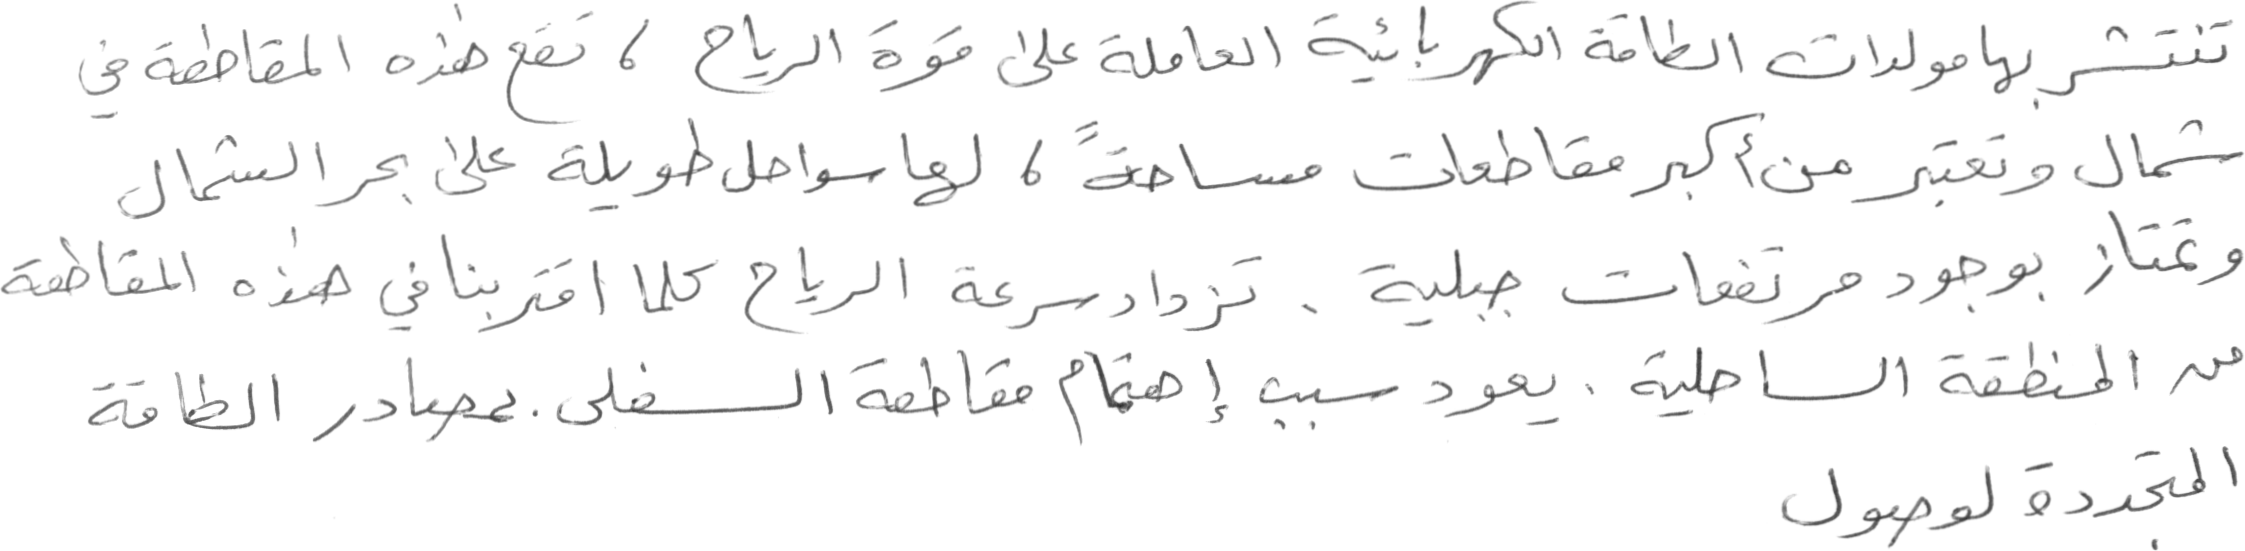 تنتشر بها مولدات الطاقة الكهربائية العاملة على قوة الرياح ، تقع هذه المقاطعة في
شمال وتعتبر من أكبر مقاطعات مساحةً ، لها سواحل طويلة على بحر الشمال
وتمتاز بوجود مرتفعات جبلية . تزداد سرعة الرياح كلما اقتربنا في هذه المقاطعة
من المنطقة الساحلية . يعود سبب إهتمام مقاطعة السفلى . بمصادر الطاقة
المتجددة لوصول